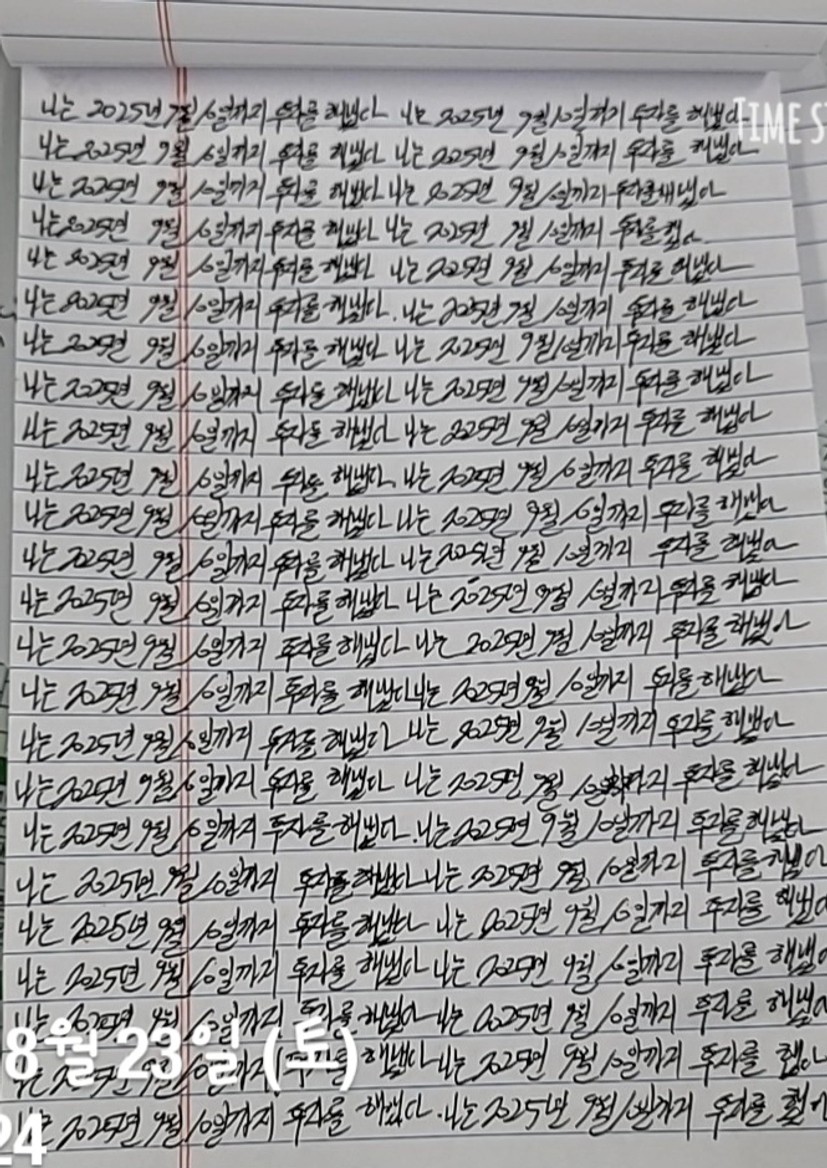 나는 2025년 9월 10일까지 투자를 해냈다 나는 2025년 9월 10일까지 투자를 해냈다
TIME S
나는 2025년 9월 10일까지 투자를 해냈다 나는 2025년 9월 10일까지 투자를 해냈다
나는 2025년 9월 10일까지 투자를 해냈다 나는 2025년 9월 10일까지 투자를 해냈다
나는 2025년 9월 10일까지 투자를 해냈다 나는 2025년 9월 10일까지 투자를
나는 2025년 9월 10일까지 투자를 해냈다 나는 2025년 9월 10일까지 투자를 해냈다
나는 2025년 9월 10일까지 투자를 해냈다. 나는 2025년 9월 10일까지 투자를 해냈다
나는 2025년 9월 10일까지 투자를 해냈다 나는 2025년 9월 10일까지 투자를 해냈다
나는 2025년 9월 10일까지 투자를 해냈다 나는 2025년 9월 10일까지 투자를 해냈다
나는 2025년 9월 10일까지 투자를 해냈다 나는 2025년 9월 10일까지 투자를 해냈다
나는 2025년 9월 10일까지 투자를 해냈다 나는 2025년 9월 10일까지 투자를 해냈다
나는 2025년 9월 10일까지 투자를 해냈다 나는 2025년 9월 10일까지 투자를 해냈다
나는 2025년 9월 10일까지 투자를 해냈다 나는 2025년 9월 10일까지 투자를 해냈다
나는 2025년 9월 10일까지 투자를 해냈다 나는 2025년 9월 10일까지 투자를 해냈다
나는 2025년 9월 10일까지 투자를 해냈다 나는 2025년 9월 10일까지 투자를 해냈다
나는 2025년 9월 10일까지 투자를 해냈다 나는 2025년 9월 10일까지 투자를 해냈다
나는 2025년 9월 10일까지 투자를 해냈다 나는 2025년 9월 10일까지 투자를 해냈다
나는 2025년 9월 10일까지 투자를 해냈다 나는 2025년 9월 투자를 해냈다
나는 2025년 9월 10일까지 투자를 해냈다. 나는 2025년 9월 10일까지 투자를 해냈다
나는 2025년 9월 10일까지 투자를 해냈다 나는 2025년 9월 10일까지 투자를 해냈다
나는 2025년 9월 10일까지 투자를 해냈다 나는 2025년 9월 10일까지 투자를 해냈다
나는 2025년 9월 10일까지 투자를 해냈다 나는 2025년 9월 10일까지 투자를 해냈다
나는 2025년 9월 10일까지 투자를 해냈다 나는 2025년 9월 10일까지 투자를 해냈다
8월 23일 (토)
투자를 해냈다 나는 2025년 9월 10일까지 투자를
나는 2025년 9월 10일까지 투자를 해냈다. 나는 2025년 9월 10일까지 투자를
24